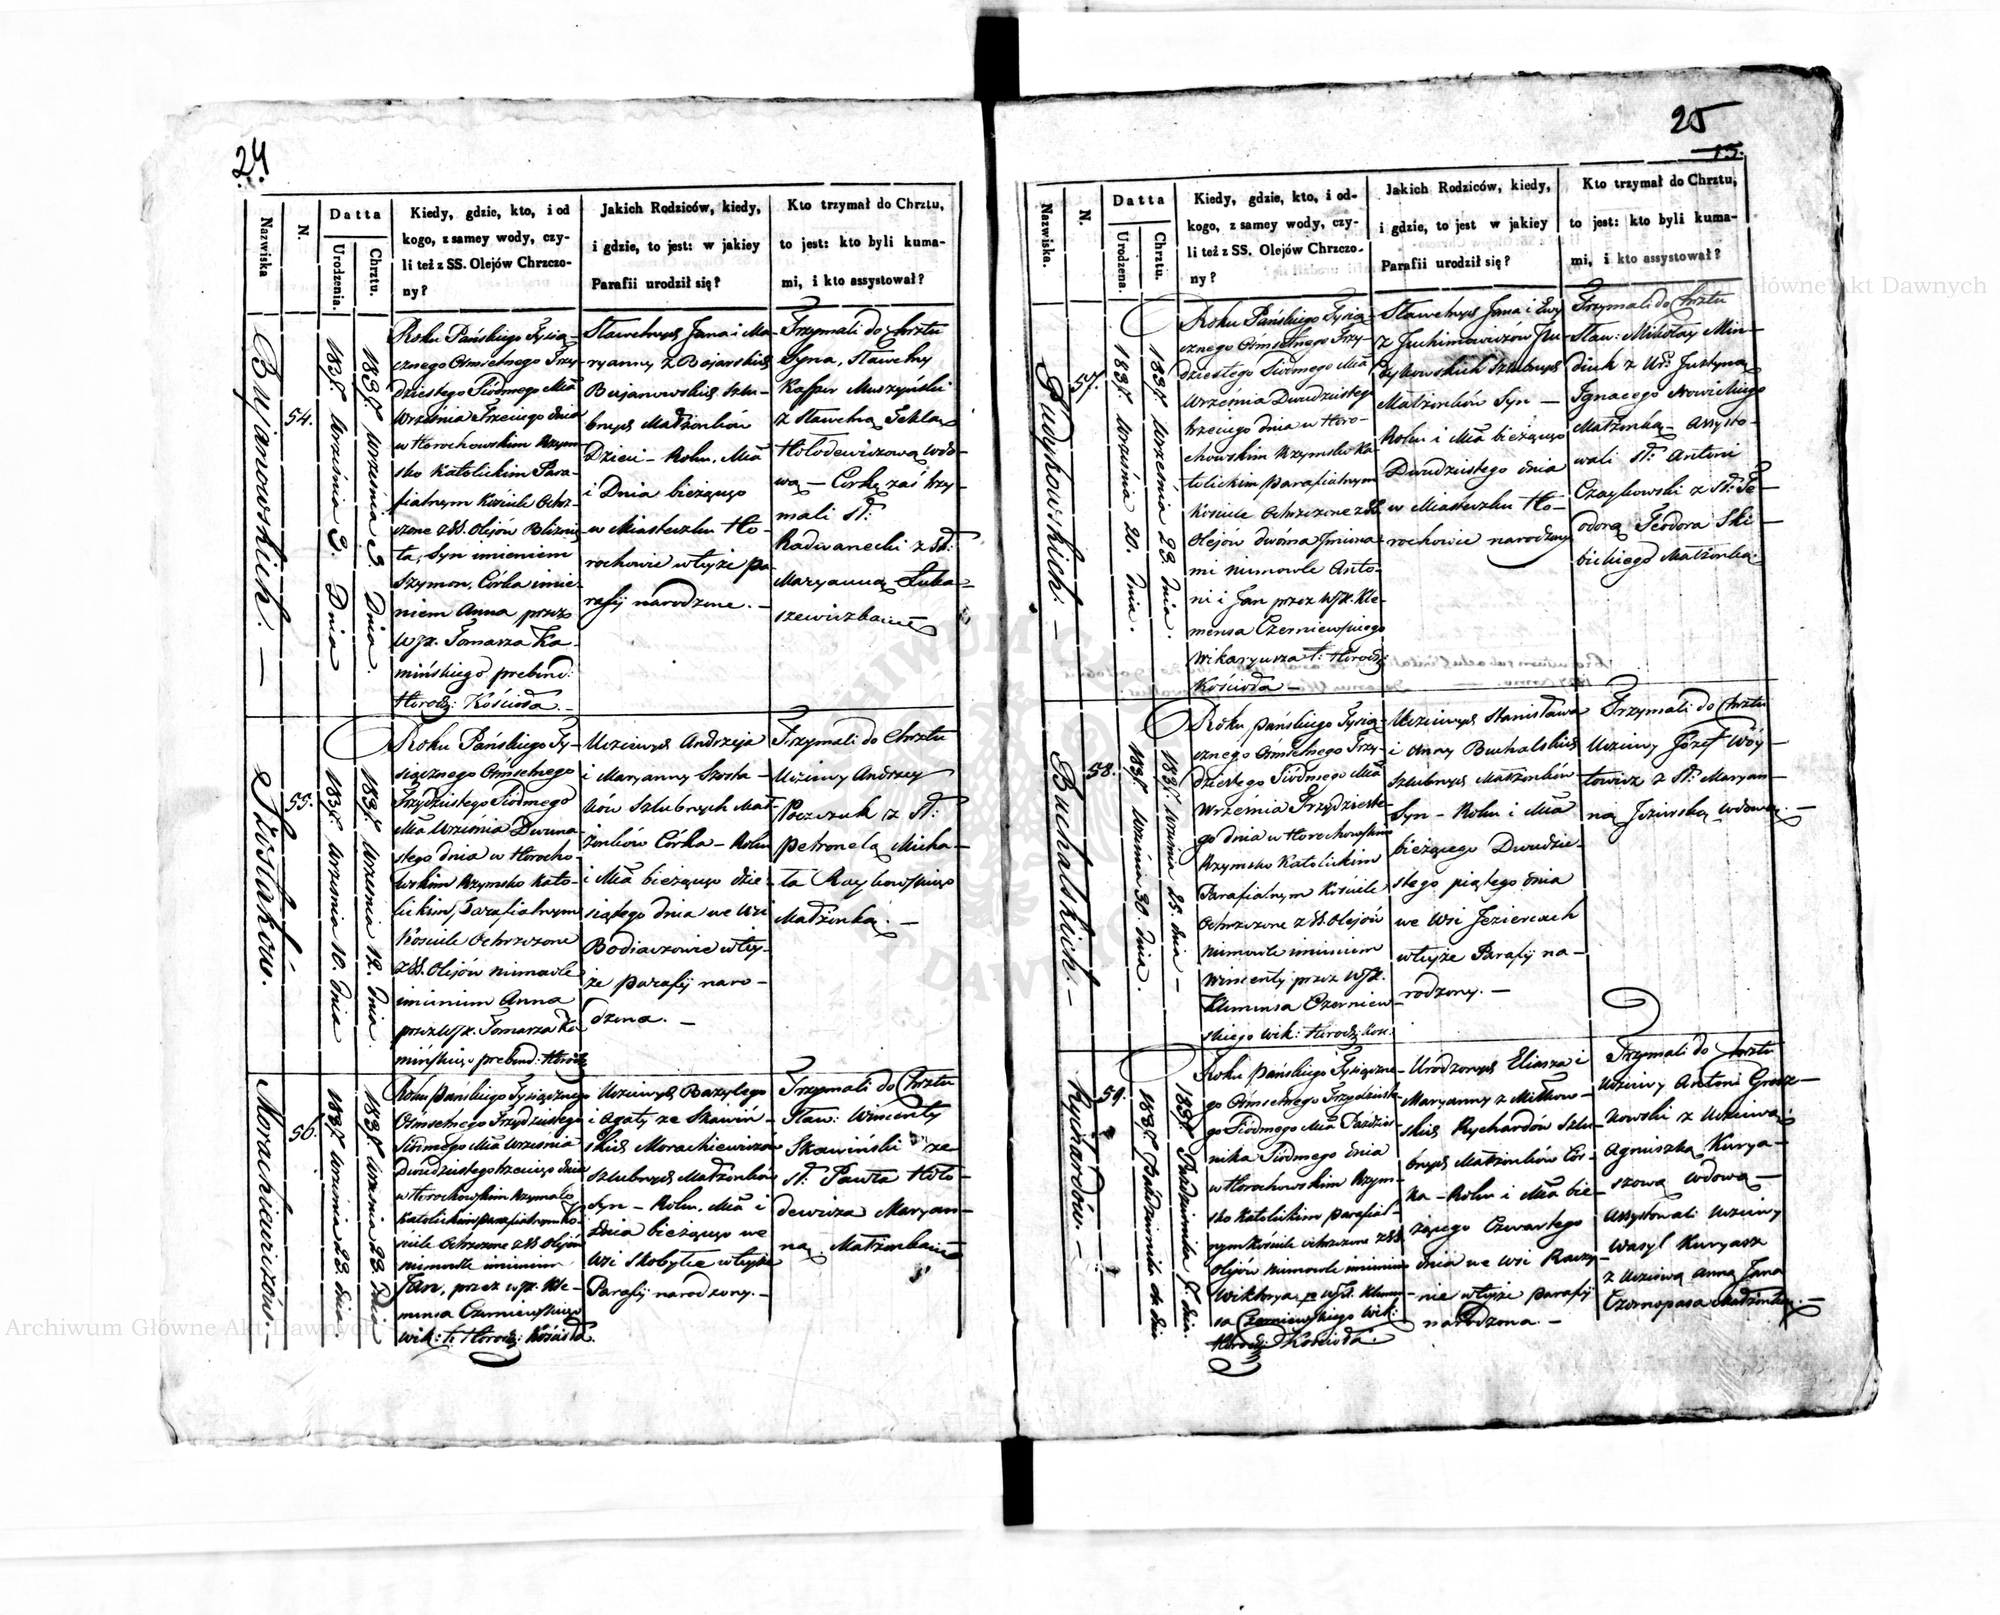 24
Nazwiska
N.
Datta
Urodzenia.
Chrztu.
Kiedy, gdzie, kto, i od
kogo, z samey wody, czy-
li też z SS. Olejów Chrzczo-
ny?
Jakich Rodziców, kiedy,
i gdzie, to jest: w jakiey
Parafii urodził się?
Kto trzymał do Chrztu,
to jest: kto byli kuma-
mi, i kto assystował?
Bujanowskich. —
54.
1837. Września 3. Dnia
1837. Września 3 Dnia.
Roku Pańskiego Tysią-
cznego Ośmsetnego Trzy-
dziestego Siódmego Mca
Września Trzeciego dnia
w Horochowskim Rzym-
sko Katolickim Para-
fialnym Kościele Ochrz-
czone z SS. Olejów Bliznię-
ta, Syn imieniem
Szymon, Córka imie-
niem Anna, przez
WJX. Tomasza Ka-
mińskiego prebend:
Horodz: Kościoła. —
Sławetnych Jana i Ma-
ryanny z Bojarskich
Bujanowskich szlu-
bnych Małżonków
Dzieci — Roku, Mca
i Dnia bieżącego
w Miasteczku Ho-
rochowie w tejże pa-
rafij narodzone. —
Trzymali do Chrztu
Syna, Sławetny
Kasper Muszyński
z Sławetną Teklą
Hołodewiczową wdo-
wą — Córkę zaś trzy-
mali St:
Radwanecki z St:
Maryanną Łuka-
szewiczkową
Szostaków.
55.
1837. Września 10. Dnia
1837. Września 12. Dnia.
Roku Pańskiego Ty-
siącznego Ośmsetnego
Trzydziestego Siódmego
Mca Września Dwuna-
stego dnia w Horocho-
wskim Rzymsko Kato-
lickim Parafialnym
Kościele Ochrzczona
z SS. Olejów niemowle
imieniem Anna
przez WJX. Tomasza Ka-
mińskiego prebend: Horodz
Uczciwych Andrzeja
i Maryanny Szosta-
ków Szlubnych Mał-
żonków Córka — Roku
i Mca bieżącego dzie-
siątego dnia we Wsi
Bodiaczowie w tej-
że parafij naro-
dzona. —
Trzymali do Chrztu
Uczciwy Andrzey
z St:
Petronelą Micha-
ła Raykowskiego
Małżonką. —
Morachiewiczów. —
56.
1837. Września 23. dnia
1837. Września 23. Dnia
Roku Pańskiego Tysiącznego
Ośmsetnego Trzydziestego
Siódmego Mca Września
Dwudziestego trzeciego dnia
w Horochowskim Rzymsko
Katolickim parafialnym Ko-
ściele Ochrzczone z SS. Olejów
niemowle imieniem
Jan, przez WJX. Kle-
mensa Czerniewskiego
Wik: t: Horodz: Kościoła.
Uczciwych Bazylego
i Agaty ze Skawiń-
skich Morachiewiczów
Szlubnych Małżonków
Syn — Roku, Mca i
Dnia bieżącego we
Wsi Skobełce w tejże
Parafij narodzony. —
Trzymali do Chrztu
Sław: Wincenty
Skawiński ze
St: Pawła Hoło-
dewicza Maryan-
ną Małżonką
25
13.
Nazwiska.
N.
Datta
Urodzena.
Chrztu.
Kiedy, gdzie, kto, i od-
kogo, z samey wody, czy-
li też z SS. Olejów Chrzczo-
ny?
Jakich Rodziców, kiedy,
i gdzie, to jest w jakiey
Parafii urodził się?
Kto trzymał do Chrztu,
to jest: kto byli kuma-
mi, i kto assystował?
Pudykowskich. —
57.
1837. Września 20. Dnia.
1837. Września 23. Dnia.
Roku Pańskiego Tysią-
cznego Ośmsetnego Trzy-
dziestego Siódmego Mca
Września Dwudziestego
trzeciego dnia w Horo-
chowskim Rzymsko Ka-
tolickim parafialnym
Kościele Ochrzczone z SS.
Olejów dwoma Imiona-
mi niemowle Anto-
ni i Jan przez WJX. Kle-
mensa Czerniewskiego
Wikaryusza t: Horodz:
Kościoła —
Sławetnych Jana i Ewy
z Juchimowiczów Pu-
dykowskich Szlubnych
Małżonków Syn —
Roku i Mca bieżącego
Dwudziestego dnia
w Miasteczku Ho-
rochowie narodzony
Trzymali do Chrztu
Sław: Mikołay Min-
diuk z Ur: Justyną
Ignacego Nowickiego
Małżonką — Assysto-
wali St: Antoni
Czaykowski z St: Te-
odorą Teodora Ski-
bickiego Małżonką
Buchalskich. —
58.
1837. Września 30. dnia.
1837. Września 25. dnia —
Roku Pańskiego Tysią-
cznego Ośmsetnego Trzy-
dziestego Siódmego Mca
Września Trzydzieste-
go dnia w Horochowskim
Rzymsko Katolickim
Parafialnym Kościele
Ochrzczone z SS. Olejów
niemowle imieniem
Wincenty przez WJX.
Klemensa Czerniew-
skiego Wik: Horodz: Kość:
Uczciwych Stanisława
i Anny Buchalskich
Szlubnych Małżonków
Syn — Roku i Mca
bieżącego Dwudzie-
stego piątego dnia
we Wsi Jeziercach
w tejże Parafij na-
rodzony. —
Trzymali do Chrztu
Uczciwy Józef Wóy-
towicz z St: Maryan-
ną Jezierską wdową. —
Rychardów. —
59.
1837. Października 4. dnia
1837. Października 7. dnia.
Roku Pańskiego Tysiączne-
go Ośmsetnego Trzydzieste-
go Siódmego Mca Paździer-
nika Siódmego dnia
w Horochowskim Rzym-
sko Katolickim parafial-
nym Kościele ochrzczone z SS.
Olejów niemowle imieniem
Wiktorya, pr WJX. Klemen-
sa Czerniewskiego Wik:
Horodz: Kościoła.
Urodzonych Eliasza i
Maryanny z Miłkow-
skich Rychardów Szlu-
bnych Małżonków Cór-
ka — Roku i Mca bie-
żącego Czwartego
dnia we Wsi Raczy-
nie w tejże parafij
narodzona. —
Trzymali do Chrztu
Uczciwy Antoni Grosz-
kowski z Uczciwą
Agnieszką Kurya-
szową wdową —
Assystowali Uczciwy
Wasyl Kuryasz
z Uczciwą Anną Jana
Czornopasa Małżonką. —
Archiwum Główne Akt Dawnych
Archiwum Główne Akt Dawnych